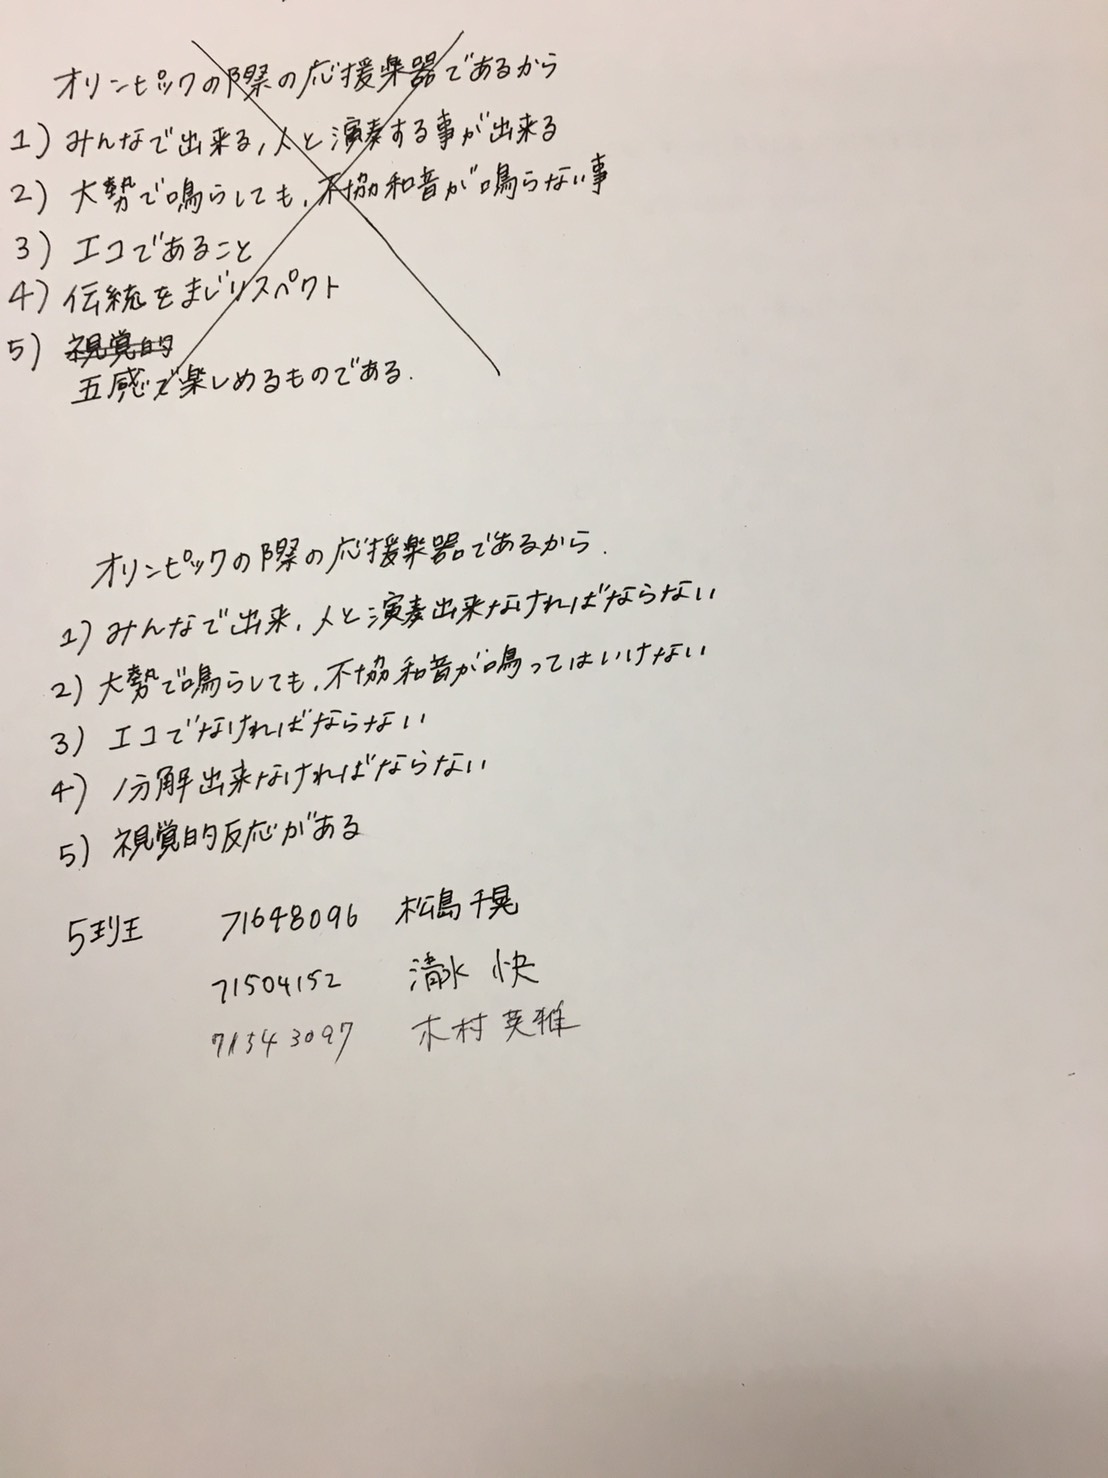 オリンピックの際の応援楽器であるから
1) みんなで出来る, 人と演奏する事が出来る
2) 大勢で鳴らしても, 不協和音が鳴らない事
3) エコであること
4) 伝統をまじリスペクト
5) 視覚的
五感で楽しめるものである.
オリンピックの際の応援楽器であるから.
1) みんなで出来, 人と演奏出来なければならない
2) 大勢で鳴らしても, 不協和音が鳴ってはいけない
3) エコでなければならない
4) 分解出来なければならない
5) 視覚的反応がある
5班 71648096 松島千晃
71504152 清水 快
71543097 木村 英雅